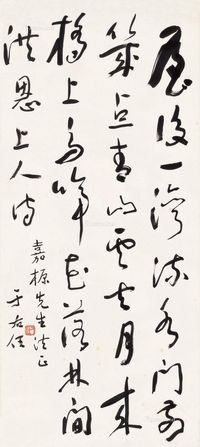 屋後一灣流水門前
幾點青山雲去月來
橋上鳥啼花落林間
洪恩上人詩
嘉榞先生法正
于右任